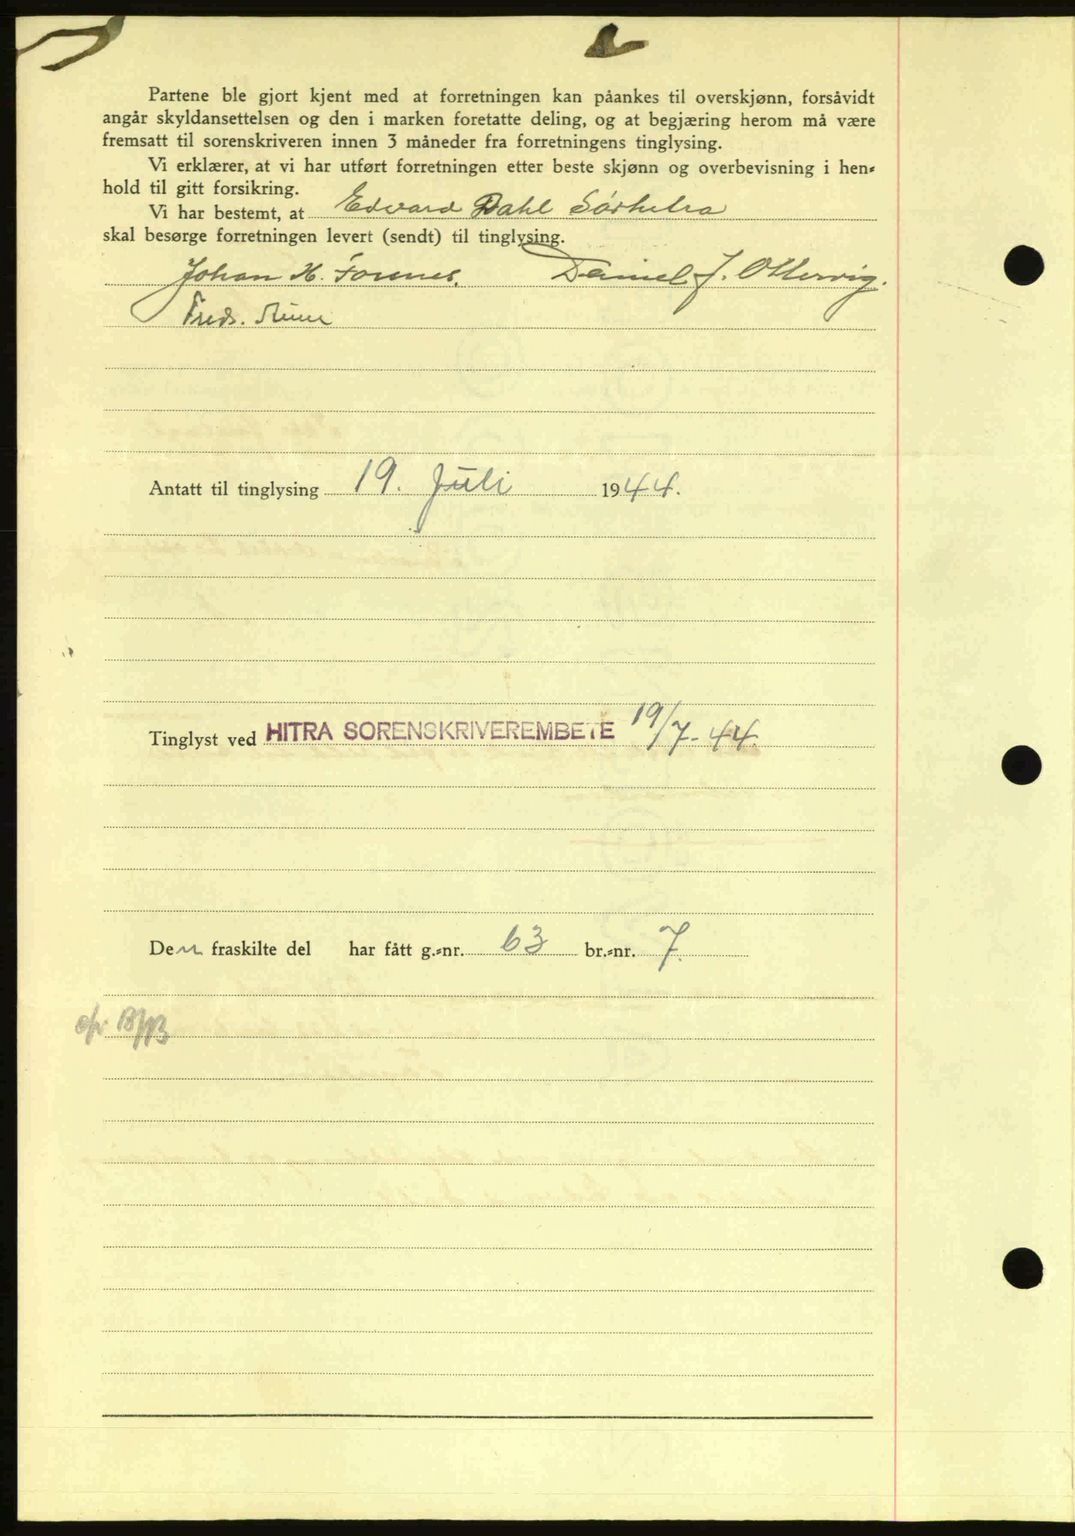 Partene ble gjort kjent med at forretningen kan påankes til overskjønn, forsåvidt
angår skyldansettelsen og den i marken foretatte deling, og at begjæring herom må være
fremsatt til sorenskriveren innen 3 måneder fra forretningens tinglysing.
Vi erklærer, at vi har utført forretningen etter beste skjønn og overbevisning i hen-
hold til gitt forsikring.
Vi har bestemt, at Edvard Dahl Sørhitra
skal besørge forretningen levert (sendt) til tinglysing.
Johan H. Forsnes. Daniel J. Ottervig.
Fredr.
Antatt til tinglysing 19. Juli 1944.
Tinglyst ved HITRA SORENSKRIVEREMBETE 19/7-44.
Den fraskilte del har fått g.-nr. 63 br.-nr. 7.